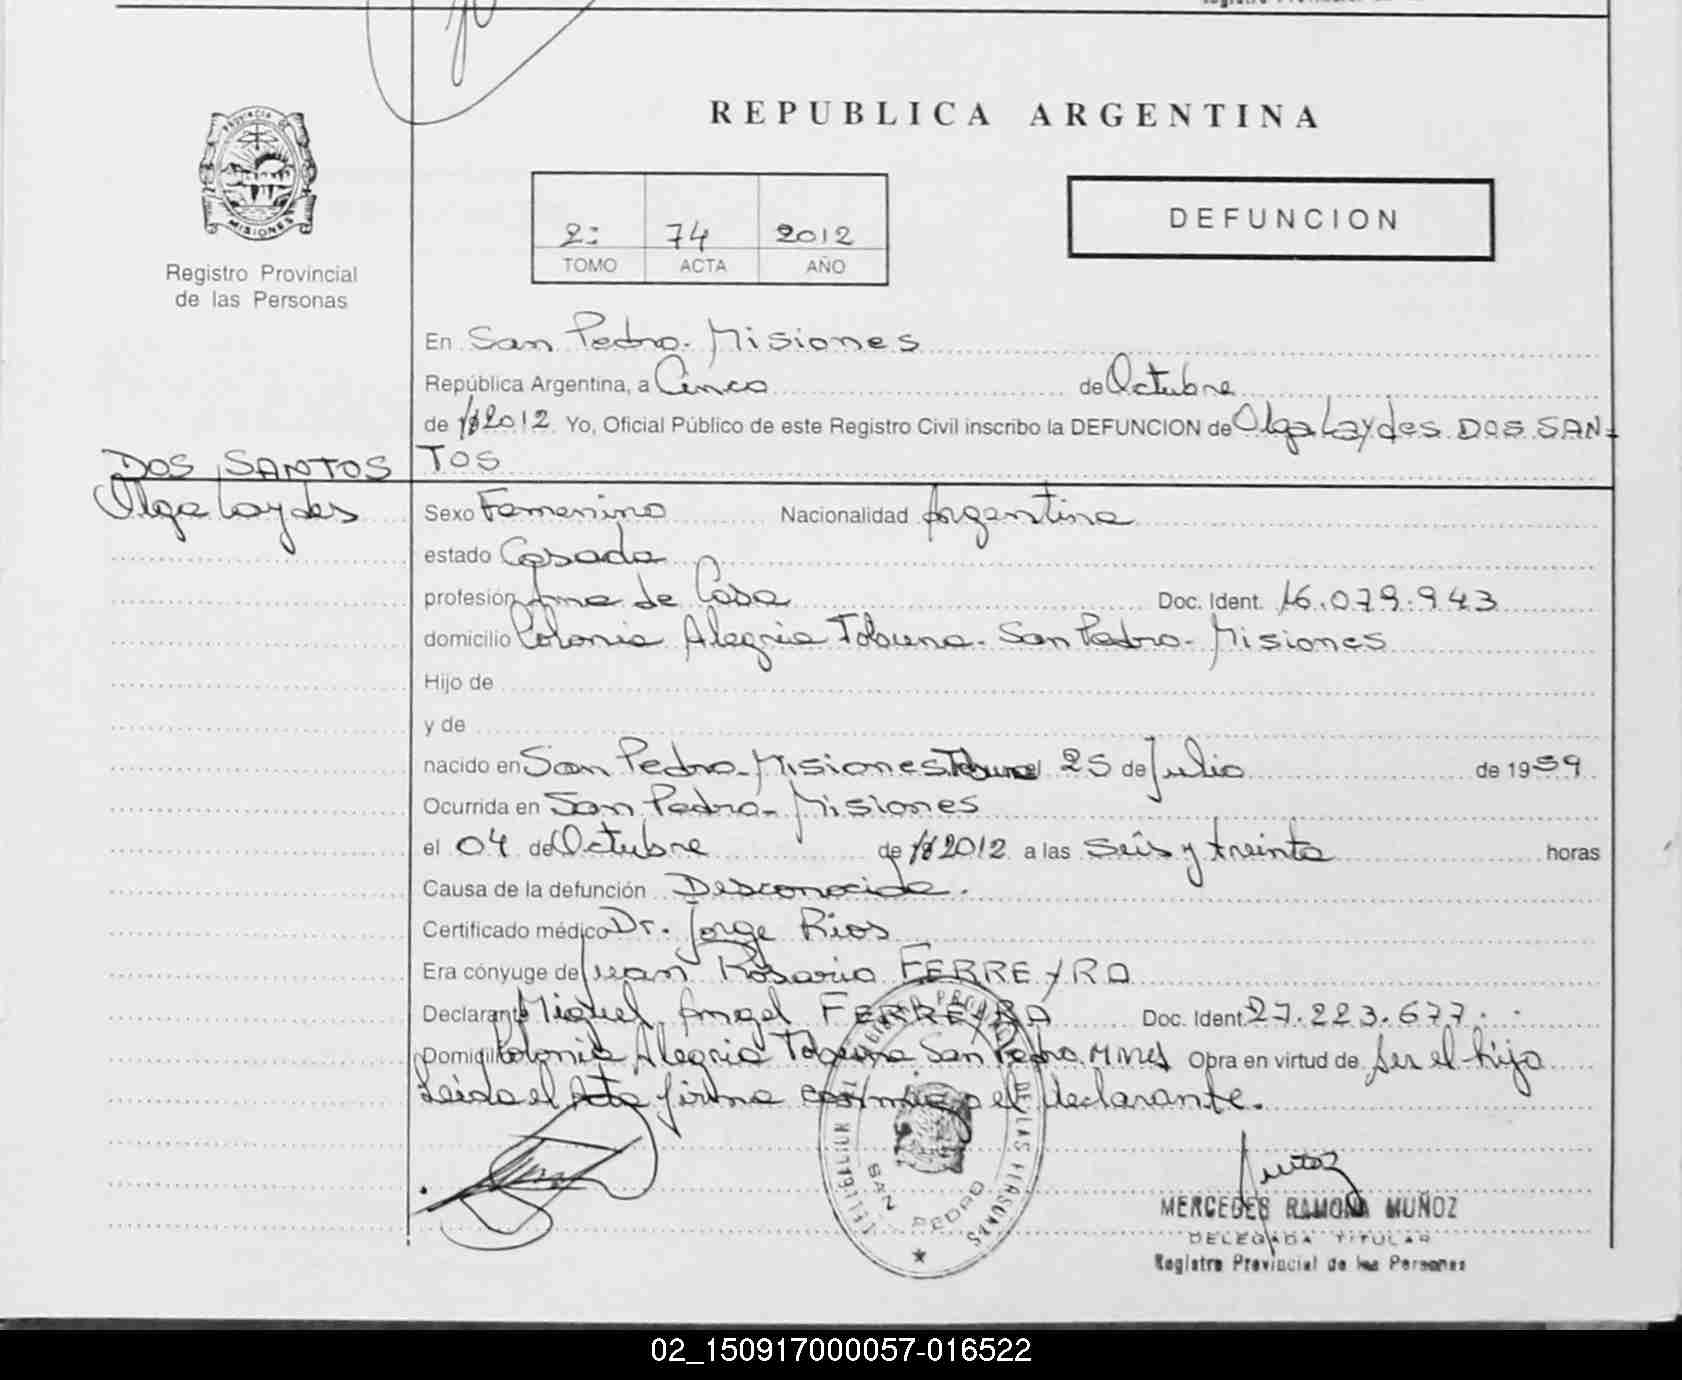 REPUBLICA ARGENTINA
PROVINCIA DE
MISIONES
Registro Provincial
de las Personas
2: 74 2012
TOMO ACTA AÑO
DEFUNCION
En San Pedro. Misiones
República Argentina, a Cinco de Octubre
de 2012 Yo, Oficial Público de este Registro Civil inscribo la DEFUNCION de Olga Laydes DOS SAN=
TOS
DOS SANTOS
Olga Laydes
Sexo Femenino Nacionalidad Argentina
estado Casada
profesión Ama de Casa Doc. Ident. 16.079.943
domicilio Colonia Alegria Tobuna. San Pedro. Misiones
Hijo de
y de
nacido en San Pedro. Misiones Tobuna el 25 de Julio de 1959
Ocurrida en San Pedro. Misiones
el 04 de Octubre de 2012 a las Seis y treinta horas
Causa de la defunción Desconocida.
Certificado médico Dr. Jorge Rios
Era cónyuge de Juan Rosario FERREYRO
Declarante Miguel Angel FERREYRA Doc. Ident. 27.223.677.
Domicilio Colonia Alegria Tobuna San Pedro. Mnes Obra en virtud de ser el hijo
Leida el Acta firma conmigo el declarante.
REGISTRO PROVINCIAL DE LAS PERSONAS
SAN PEDRO
MERCEDES RAMONA MUÑOZ
DELEGADA TITULAR
Registro Provincial de las Personas
02_150917000057-016522